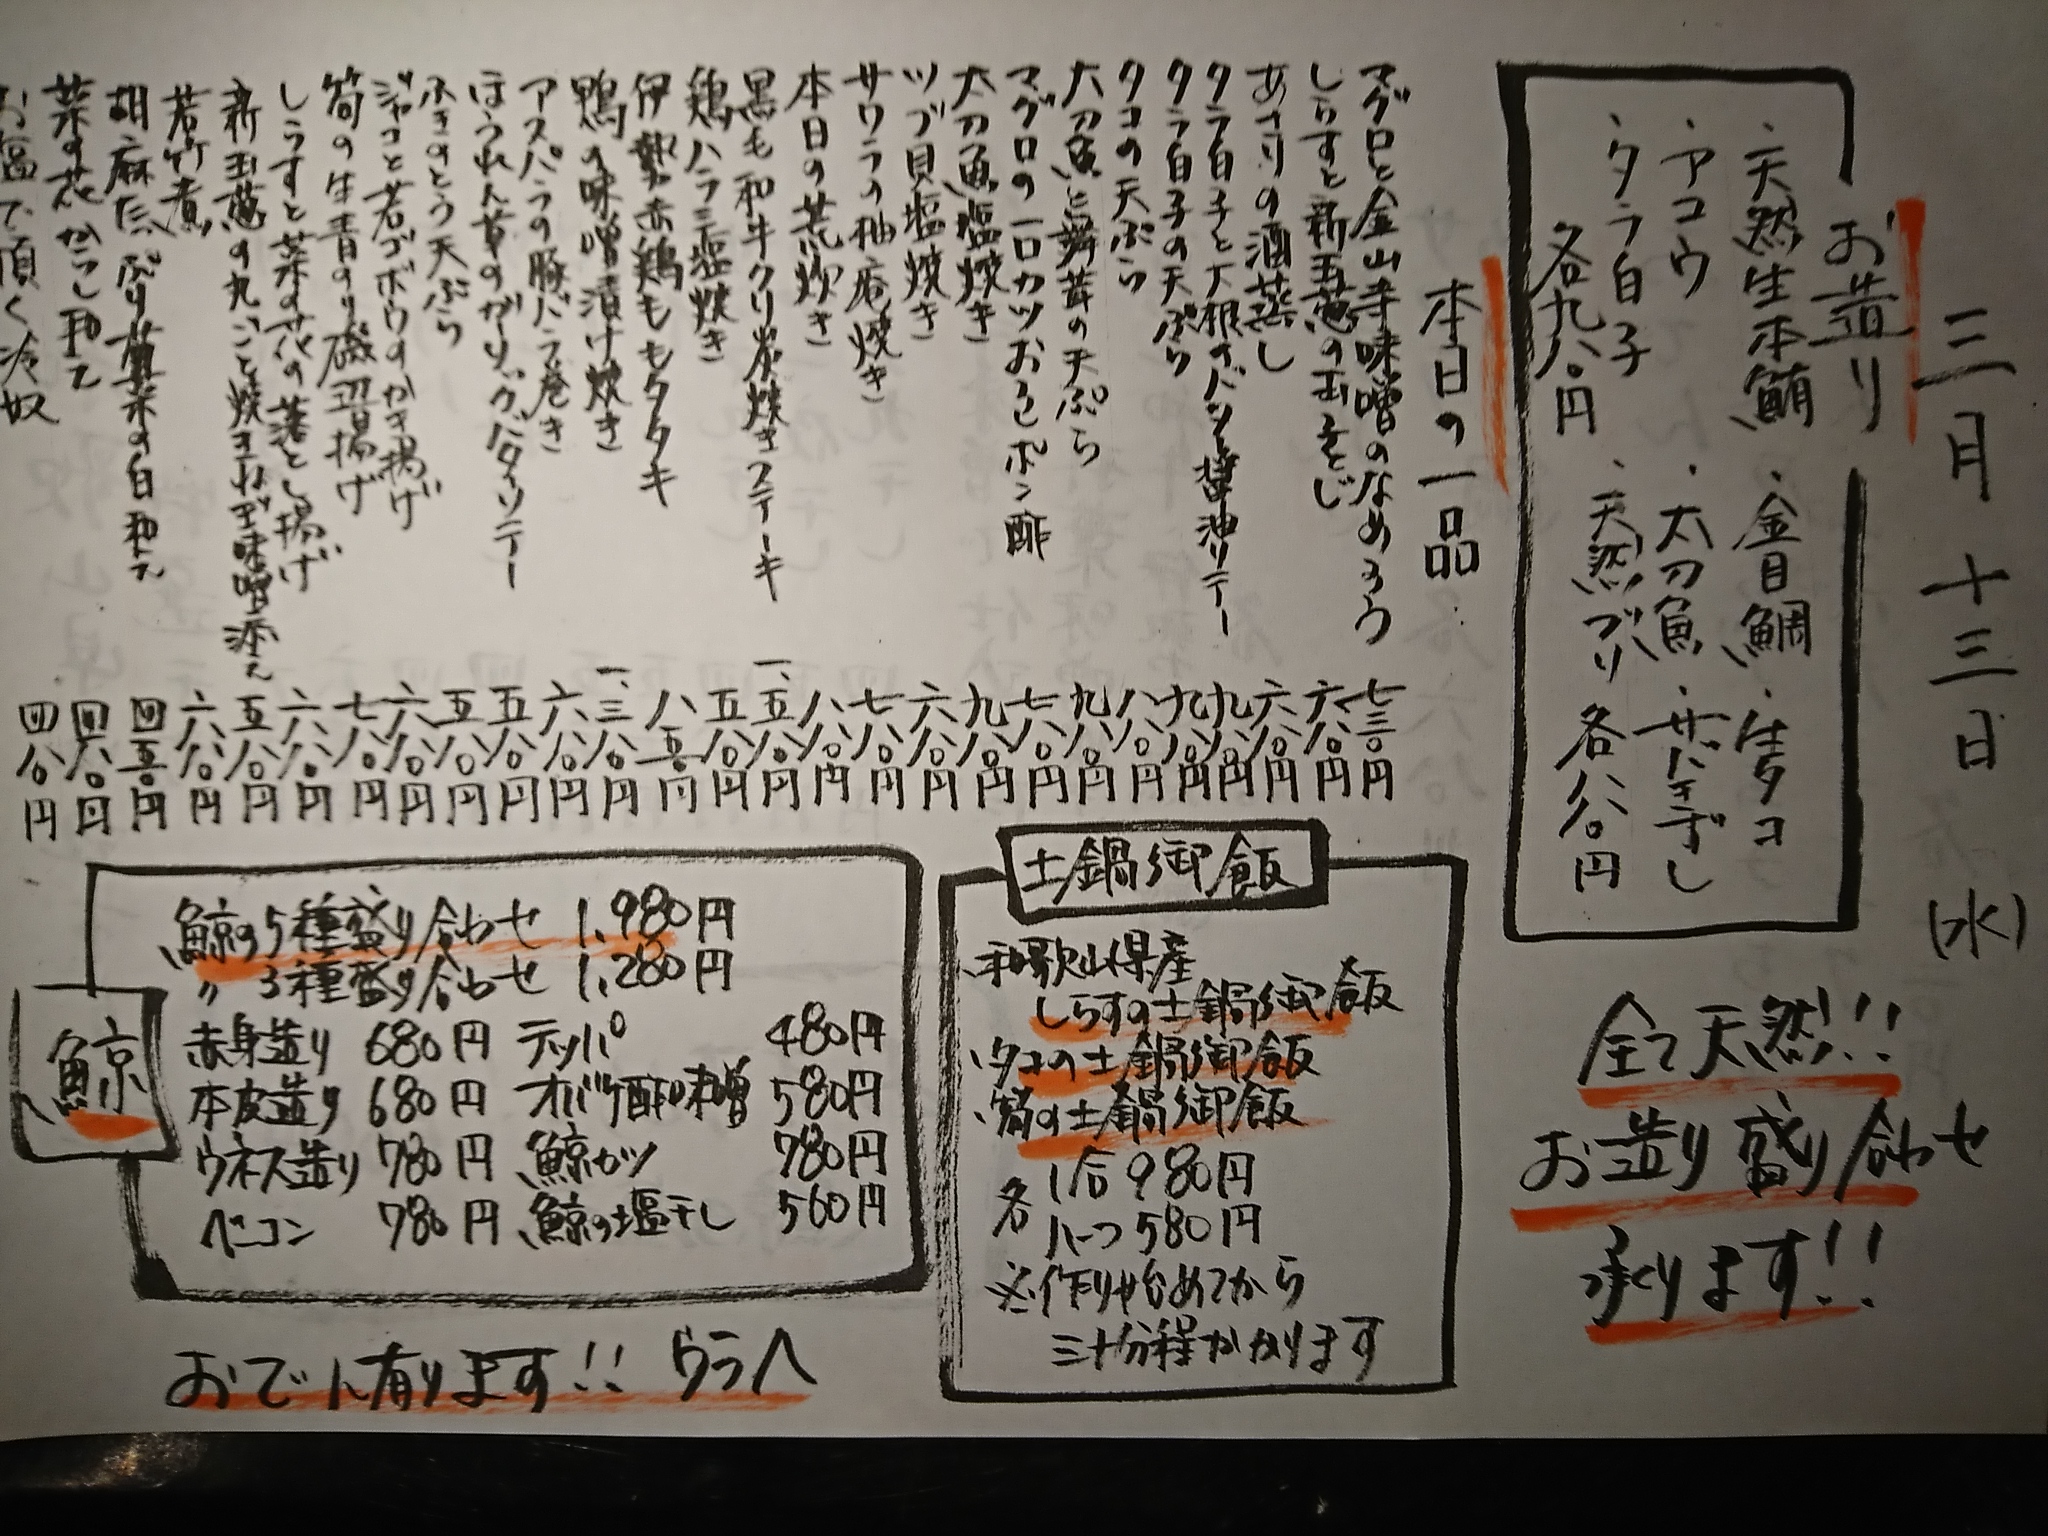 三月十三日(水)
お造り
・天然生本鮪
・金目鯛
・生タコ
・アコウ
・太刀魚
・サバきずし
・タラ白子
・天然ブリ
各九八〇円
各八八〇円
全て天然!!
お造り盛り合わせ
承ります!!
本日の一品
マグロと金山寺味噌のなめろう 七三〇円
しらすと新玉葱の玉子とじ 六八〇円
あさりの酒蒸し 六八〇円
タラ白子と大根のバター醤油ソテー 九八〇円
タラ白子の天ぷら 九八〇円
タコの天ぷら 八八〇円
太刀魚と舞茸の天ぷら 九八〇円
マグロの一口カツおろしポン酢 七八〇円
太刀魚塩焼き 九八〇円
ツブ貝塩焼き 六八〇円
サワラの柚庵焼き 七八〇円
本日の荒炊き 八八〇円
黒毛和牛クリ炭焼きステーキ 一、五八〇円
鶏ハラミ塩焼き 五八〇円
伊勢赤鶏ももタタキ 八五〇円
鴨の味噌漬け焼き 一、三八〇円
アスパラの豚バラ巻き 六八〇円
ほうれん草のガーリックバターソテー 五八〇円
ふきのとう天ぷら 五八〇円
ジャコと若ゴボウのかき揚げ 六八〇円
筍の生青のり磯辺揚げ 七八〇円
しらすと菜の花の落とし揚げ 六八〇円
新玉葱の丸ごと焼きねぎ味噌添え 五八〇円
若竹煮 六八〇円
胡麻たっぷり菊菜の白和え 四五〇円
菜の花からし和え 四八〇円
お塩で頂く冷奴 四八〇円
土鍋御飯
和歌山県産
しらすの土鍋御飯
・タコの土鍋御飯
・筍の土鍋御飯
各 1合980円
ハーフ580円
※作り始めてから
三十分程かかります
鯨
鯨の5種盛り合わせ 1,980円
〃 3種盛り合わせ 1,280円
赤身造り 680円 テッパ 480円
本皮造り 680円 オバケ酢味噌 580円
ウネス造り 780円 鯨カツ 780円
ベーコン 780円 鯨の塩干し 560円
おでん有ります!! ウラへ